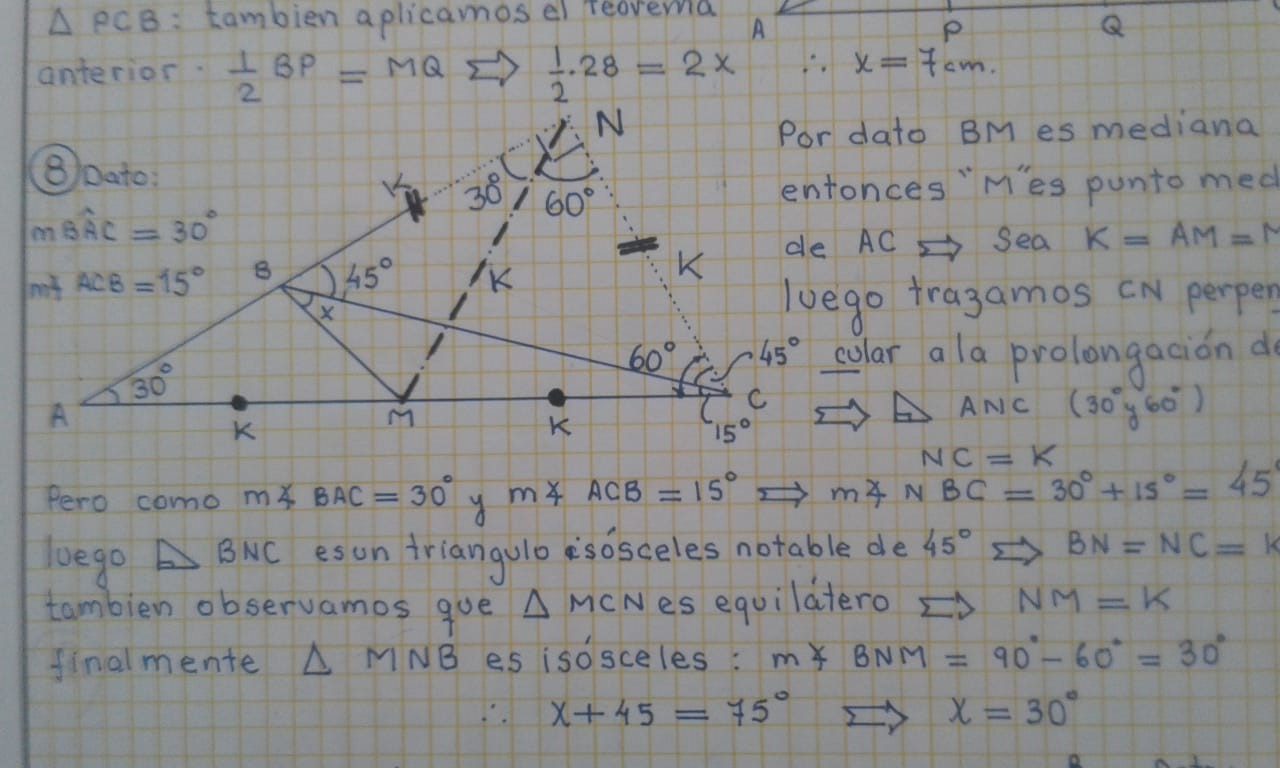 Δ PCB: tambien aplicamos el Teorema
anterior. 1/2 BP = MQ ⇒ 1/2.28 = 2x ∴ x = 7cm.
A P Q
8 Dato:
mBÂC = 30°
m∡ ACB = 15°
N
K
30°
60°
B
45°
x
K
K
30°
60°
45°
A
K
M
K
C
15°
Por dato BM es mediana
entonces "M" es punto med
de AC ⇒ Sea K = AM = M
luego trazamos CN perpen
cular a la prolongación d
⇒ ⊿ ANC (30° y 60°)
NC = K
Pero como m∡ BAC = 30° y m∡ ACB = 15° ⇒ m∡ NBC = 30° + 15° = 45°
luego ⊿ BNC es un triangulo isósceles notable de 45° ⇒ BN = NC = K
tambien observamos que Δ MCN es equilátero ⇒ NM = K
finalmente Δ MNB es isósceles : m∡ BNM = 90° - 60° = 30°
∴ x + 45 = 75° ⇒ x = 30°